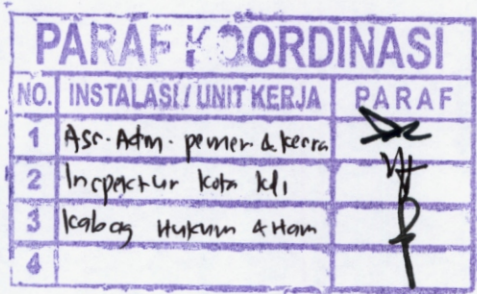 PARAF KOORDINASI
NO. INSTALASI / UNIT KERJA PARAF
1 Ass. Adm. pemer. & kesra
2 Inspektur Kota kdi
3 Kabag Hukum & Ham
4